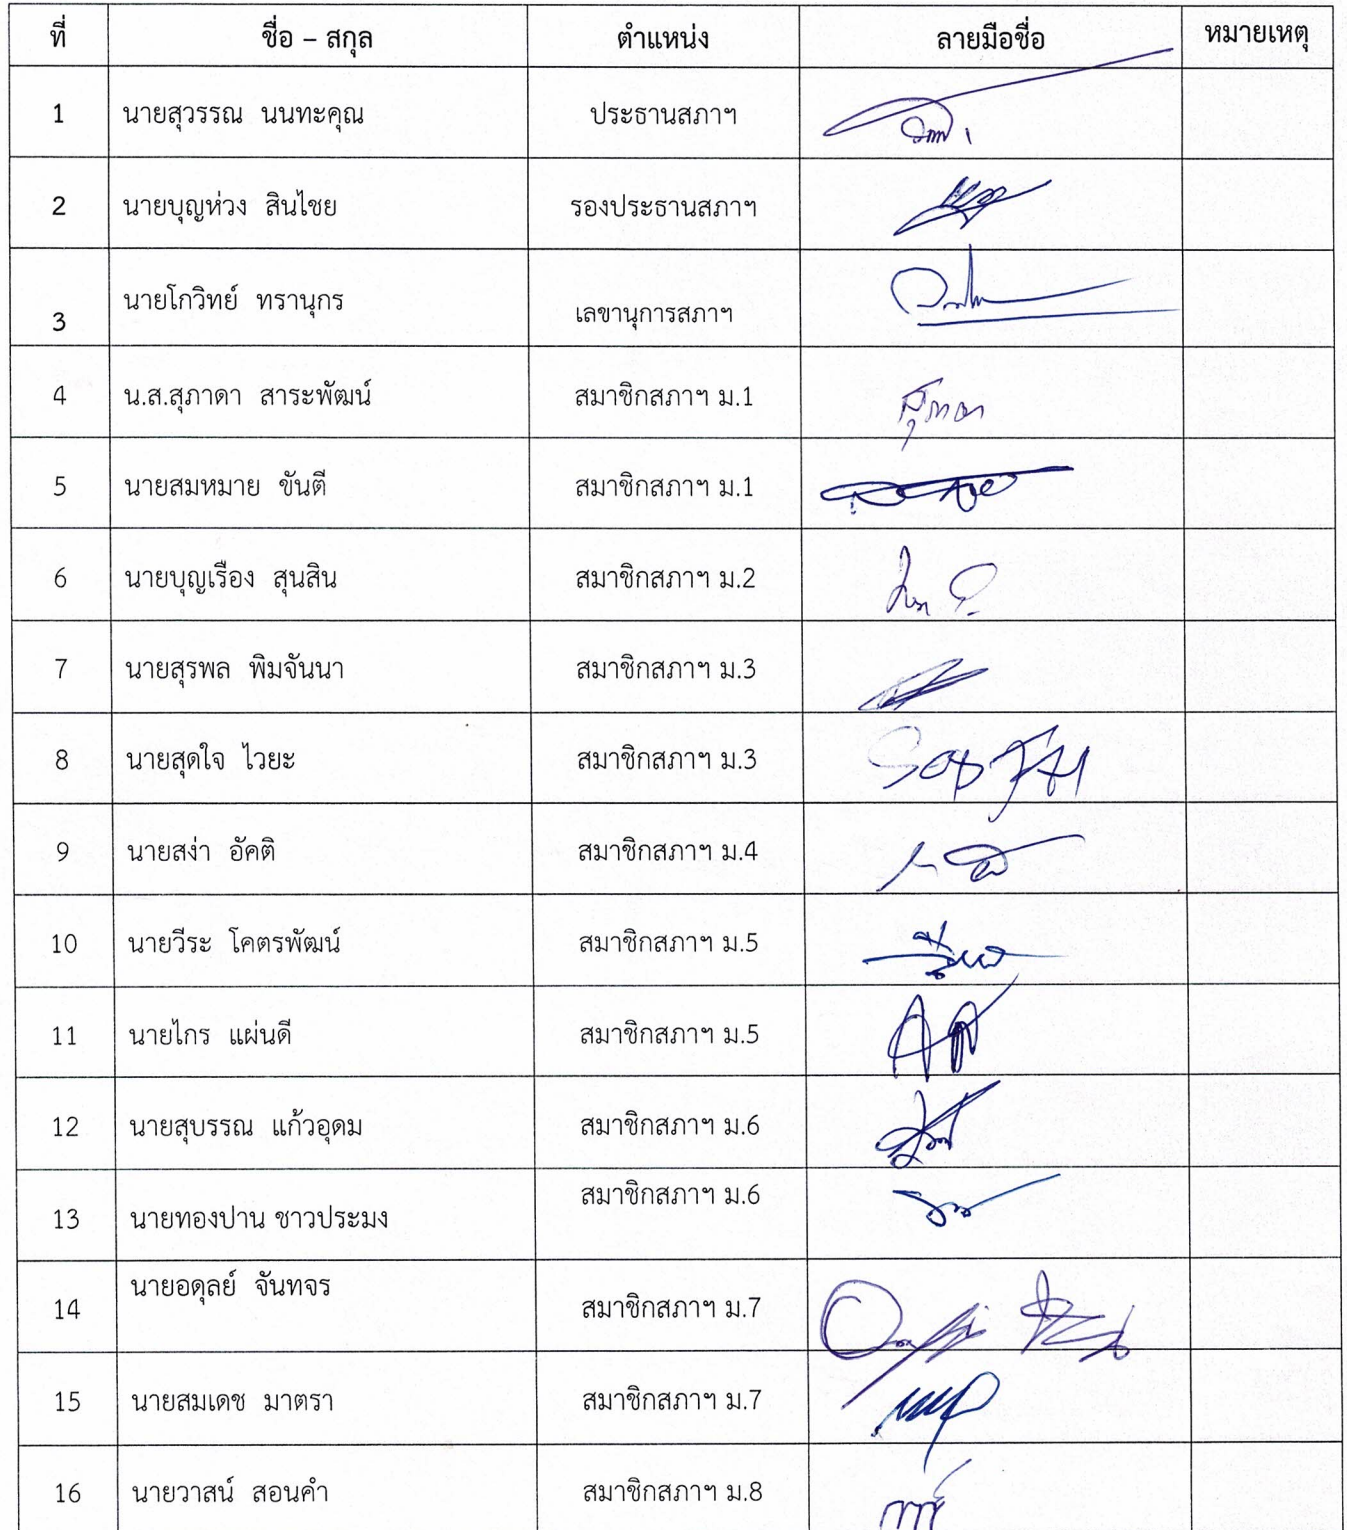 ที่ ชื่อ – สกุล ตำแหน่ง ลายมือชื่อ หมายเหตุ
1 นายสุวรรณ นนทะคุณ ประธานสภาฯ
2 นายบุญห่วง สินไชย รองประธานสภาฯ
3 นายโกวิทย์ ทรานุกร เลขานุการสภาฯ
4 น.ส.สุภาดา สาระพัฒน์ สมาชิกสภาฯ ม.1 สุภาดา
5 นายสมหมาย ขันตี สมาชิกสภาฯ ม.1
6 นายบุญเรือง สุนสิน สมาชิกสภาฯ ม.2
7 นายสุรพล พิมจันนา สมาชิกสภาฯ ม.3
8 นายสุดใจ ไวยะ สมาชิกสภาฯ ม.3
9 นายสง่า อัคติ สมาชิกสภาฯ ม.4
10 นายวีระ โคตรพัฒน์ สมาชิกสภาฯ ม.5
11 นายไกร แผ่นดี สมาชิกสภาฯ ม.5
12 นายสุบรรณ แก้วอุดม สมาชิกสภาฯ ม.6
13 นายทองปาน ชาวประมง สมาชิกสภาฯ ม.6
14 นายอดุลย์ จันทจร สมาชิกสภาฯ ม.7
15 นายสมเดช มาตรา สมาชิกสภาฯ ม.7
16 นายวาสน์ สอนคำ สมาชิกสภาฯ ม.8